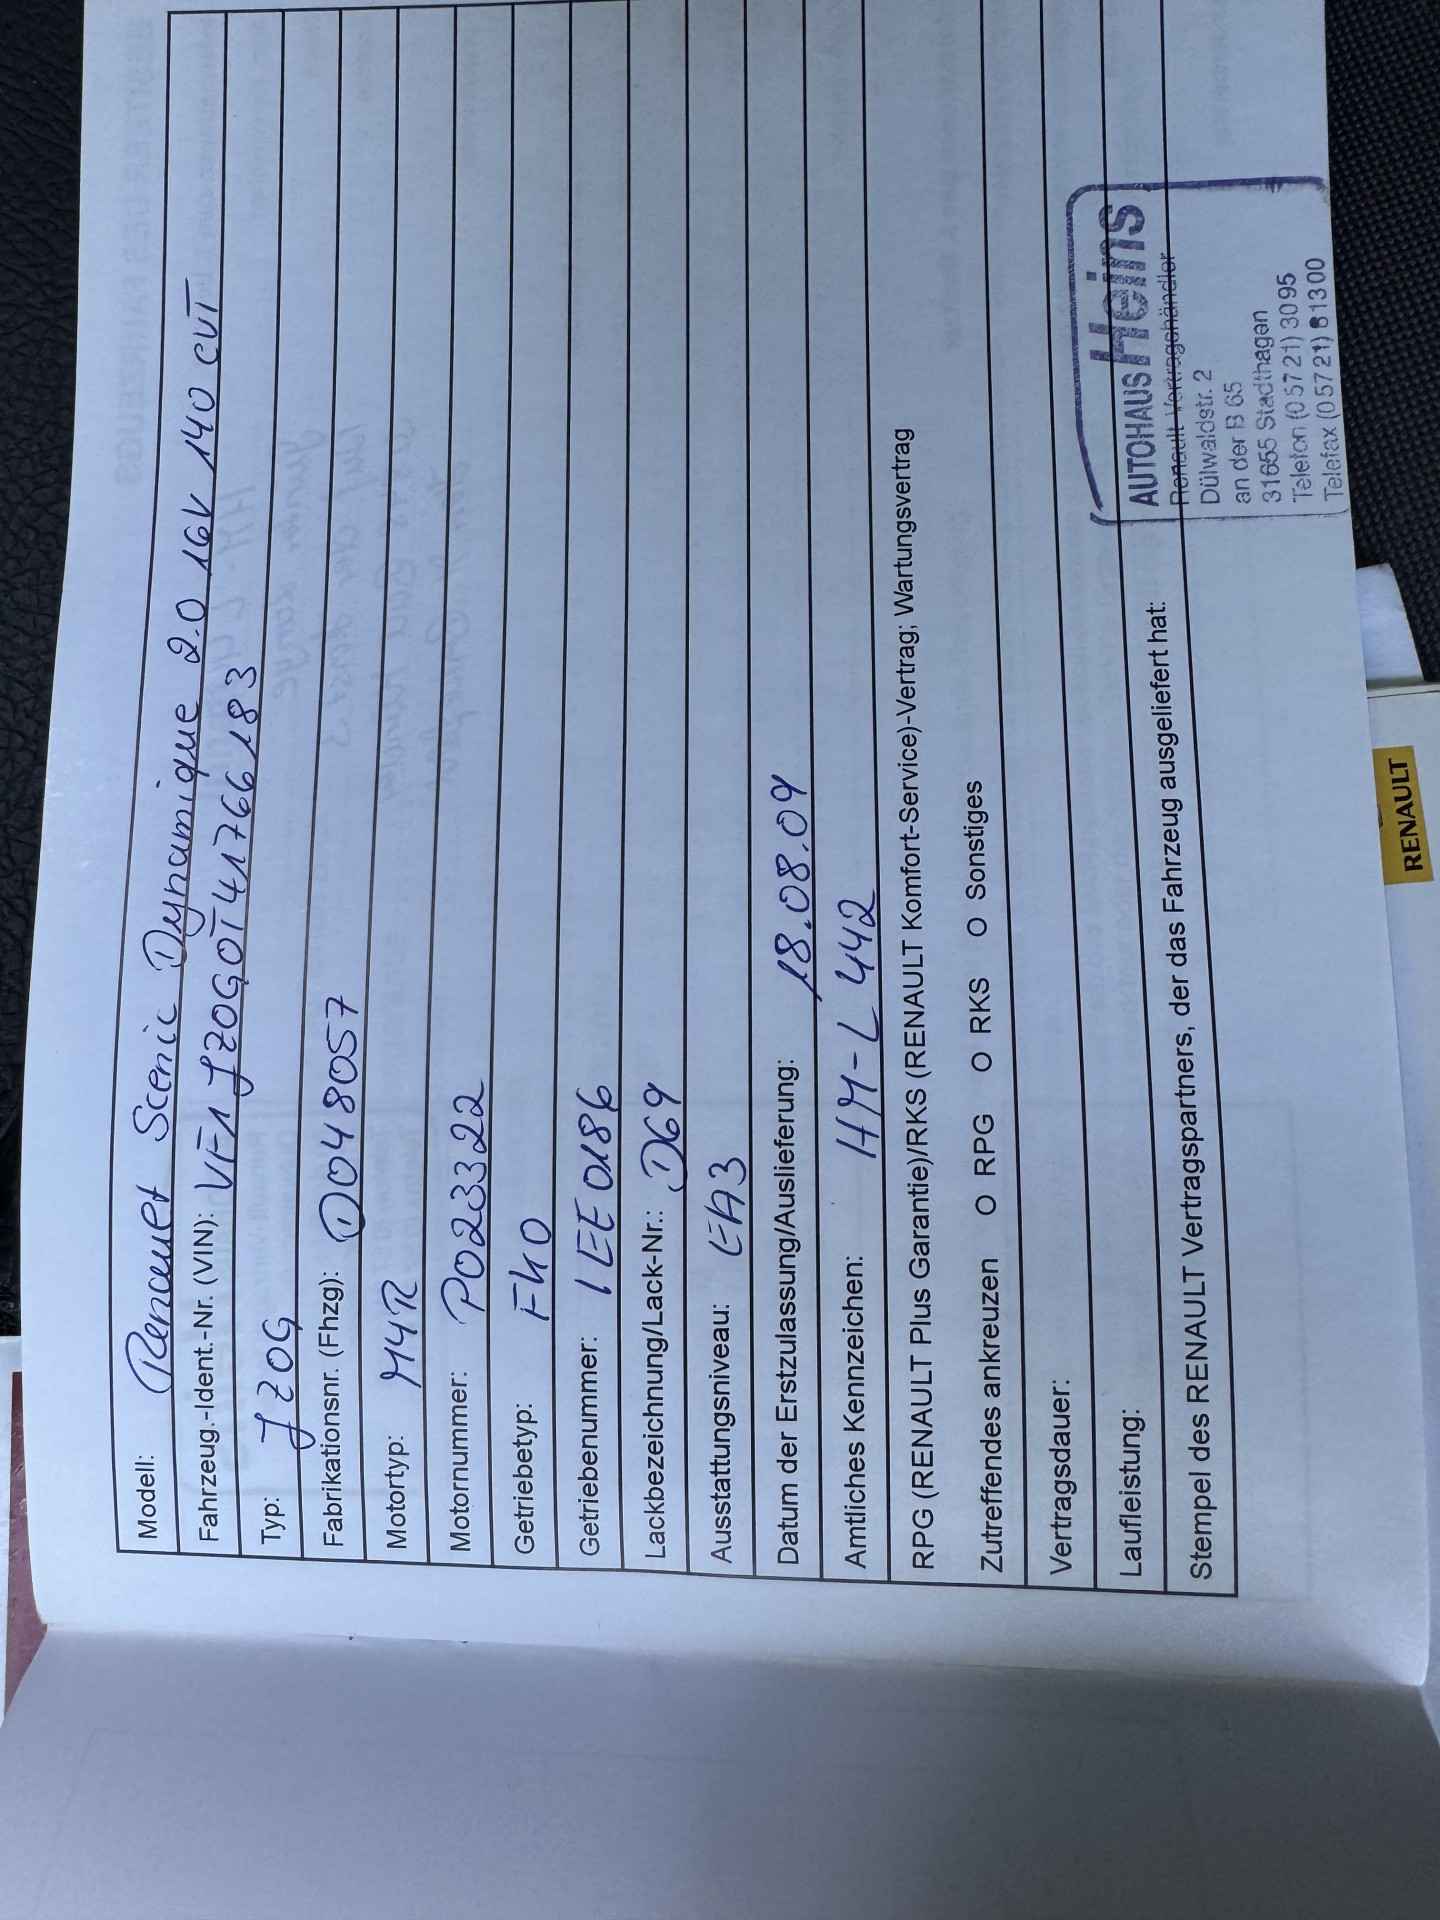 Modell: Renault Scenic Dynamique 2.0 16V 140 CVT
Fahrzeug.-Ident.-Nr. (VIN): VF1JZ0G0T41766183
Typ: JZ0G
Fabrikationsnr. (Fhzg): D048057
Motortyp: M4R
Motornummer: P023322
Getriebetyp: FK0
Getriebenummer: 1EE0186
Lackbezeichnung/Lack-Nr.: D69
Ausstattungsniveau: EA3
Datum der Erstzulassung/Auslieferung: 18.08.09
Amtliches Kennzeichen: HM-L 442
RPG (RENAULT Plus Garantie)/RKS (RENAULT Komfort-Service)-Vertrag; Wartungsvertrag
Zutreffendes ankreuzen O RPG O RKS O Sonstiges
Vertragsdauer:
Laufleistung:
Stempel des RENAULT Vertragspartners, der das Fahrzeug ausgeliefert hat:
AUTOHAUS Heins
Renault Vertragshändler
Dülwaldstr. 2
an der B 65
31655 Stadthagen
Telefon (05721) 3095
Telefax (05721) 81300
RENAULT